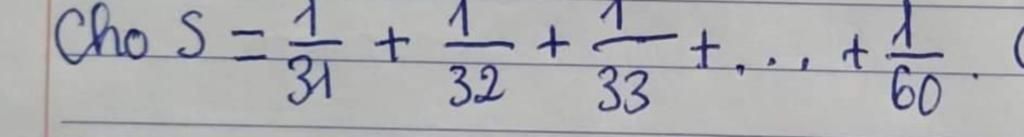 Cho S = 1/31 + 1/32 + 1/33 + ... + 1/60. (